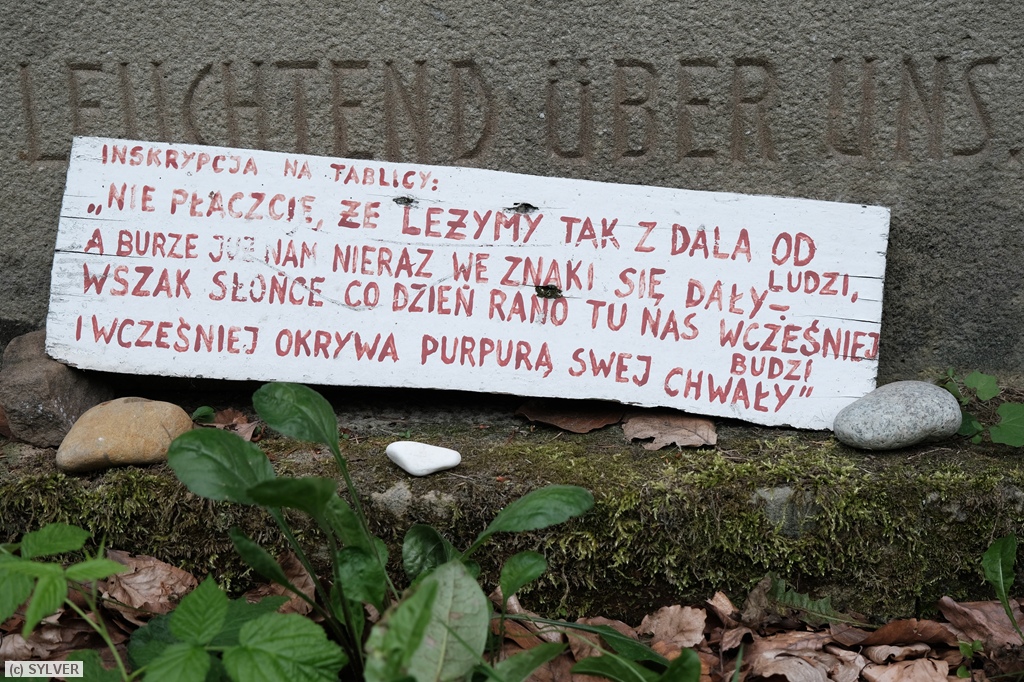 LEUCHTEND ÜBER UNS.
INSKRYPCJA NA TABLICY:
„NIE PŁACZCIE, ŻE LEŻYMY TAK Z DALA OD LUDZI,
A BURZE JUŻ NAM NIERAZ WE ZNAKI SIĘ DAŁY –
WSZAK SŁOŃCE CO DZIEŃ RANO TU NAS WCZEŚNIEJ BUDZI
I WCZEŚNIEJ OKRYWA PURPURĄ SWEJ CHWAŁY”
(c) SYLVER